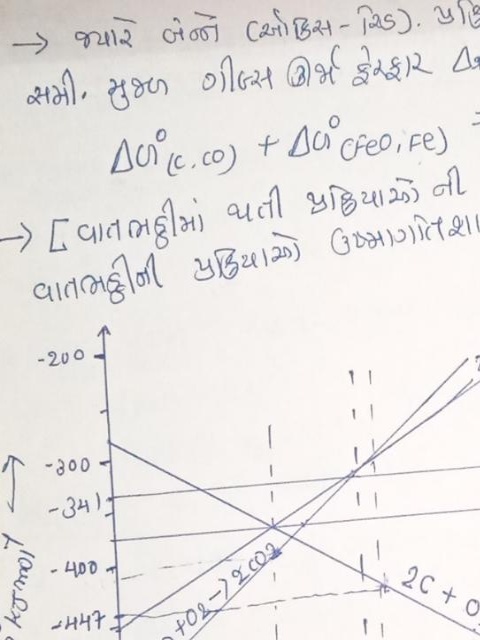 → જ્યારે બંન્ને (ઓક્સિ-રિડ). પ્રક્રિ
સમી. મુજબ ગીબ્સ ઊર્જા ફેરફાર
ΔG°(C,CO) + ΔG°(FeO,Fe) =
→ [વાતભઠ્ઠીમાં થતી પ્રક્રિયાઓ ની
વાતભઠ્ઠીની પ્રક્રિયાઓ ઉષ્માગતિશા
-200
-300
-341
-400
-447
+O2→2CO2
2C + O